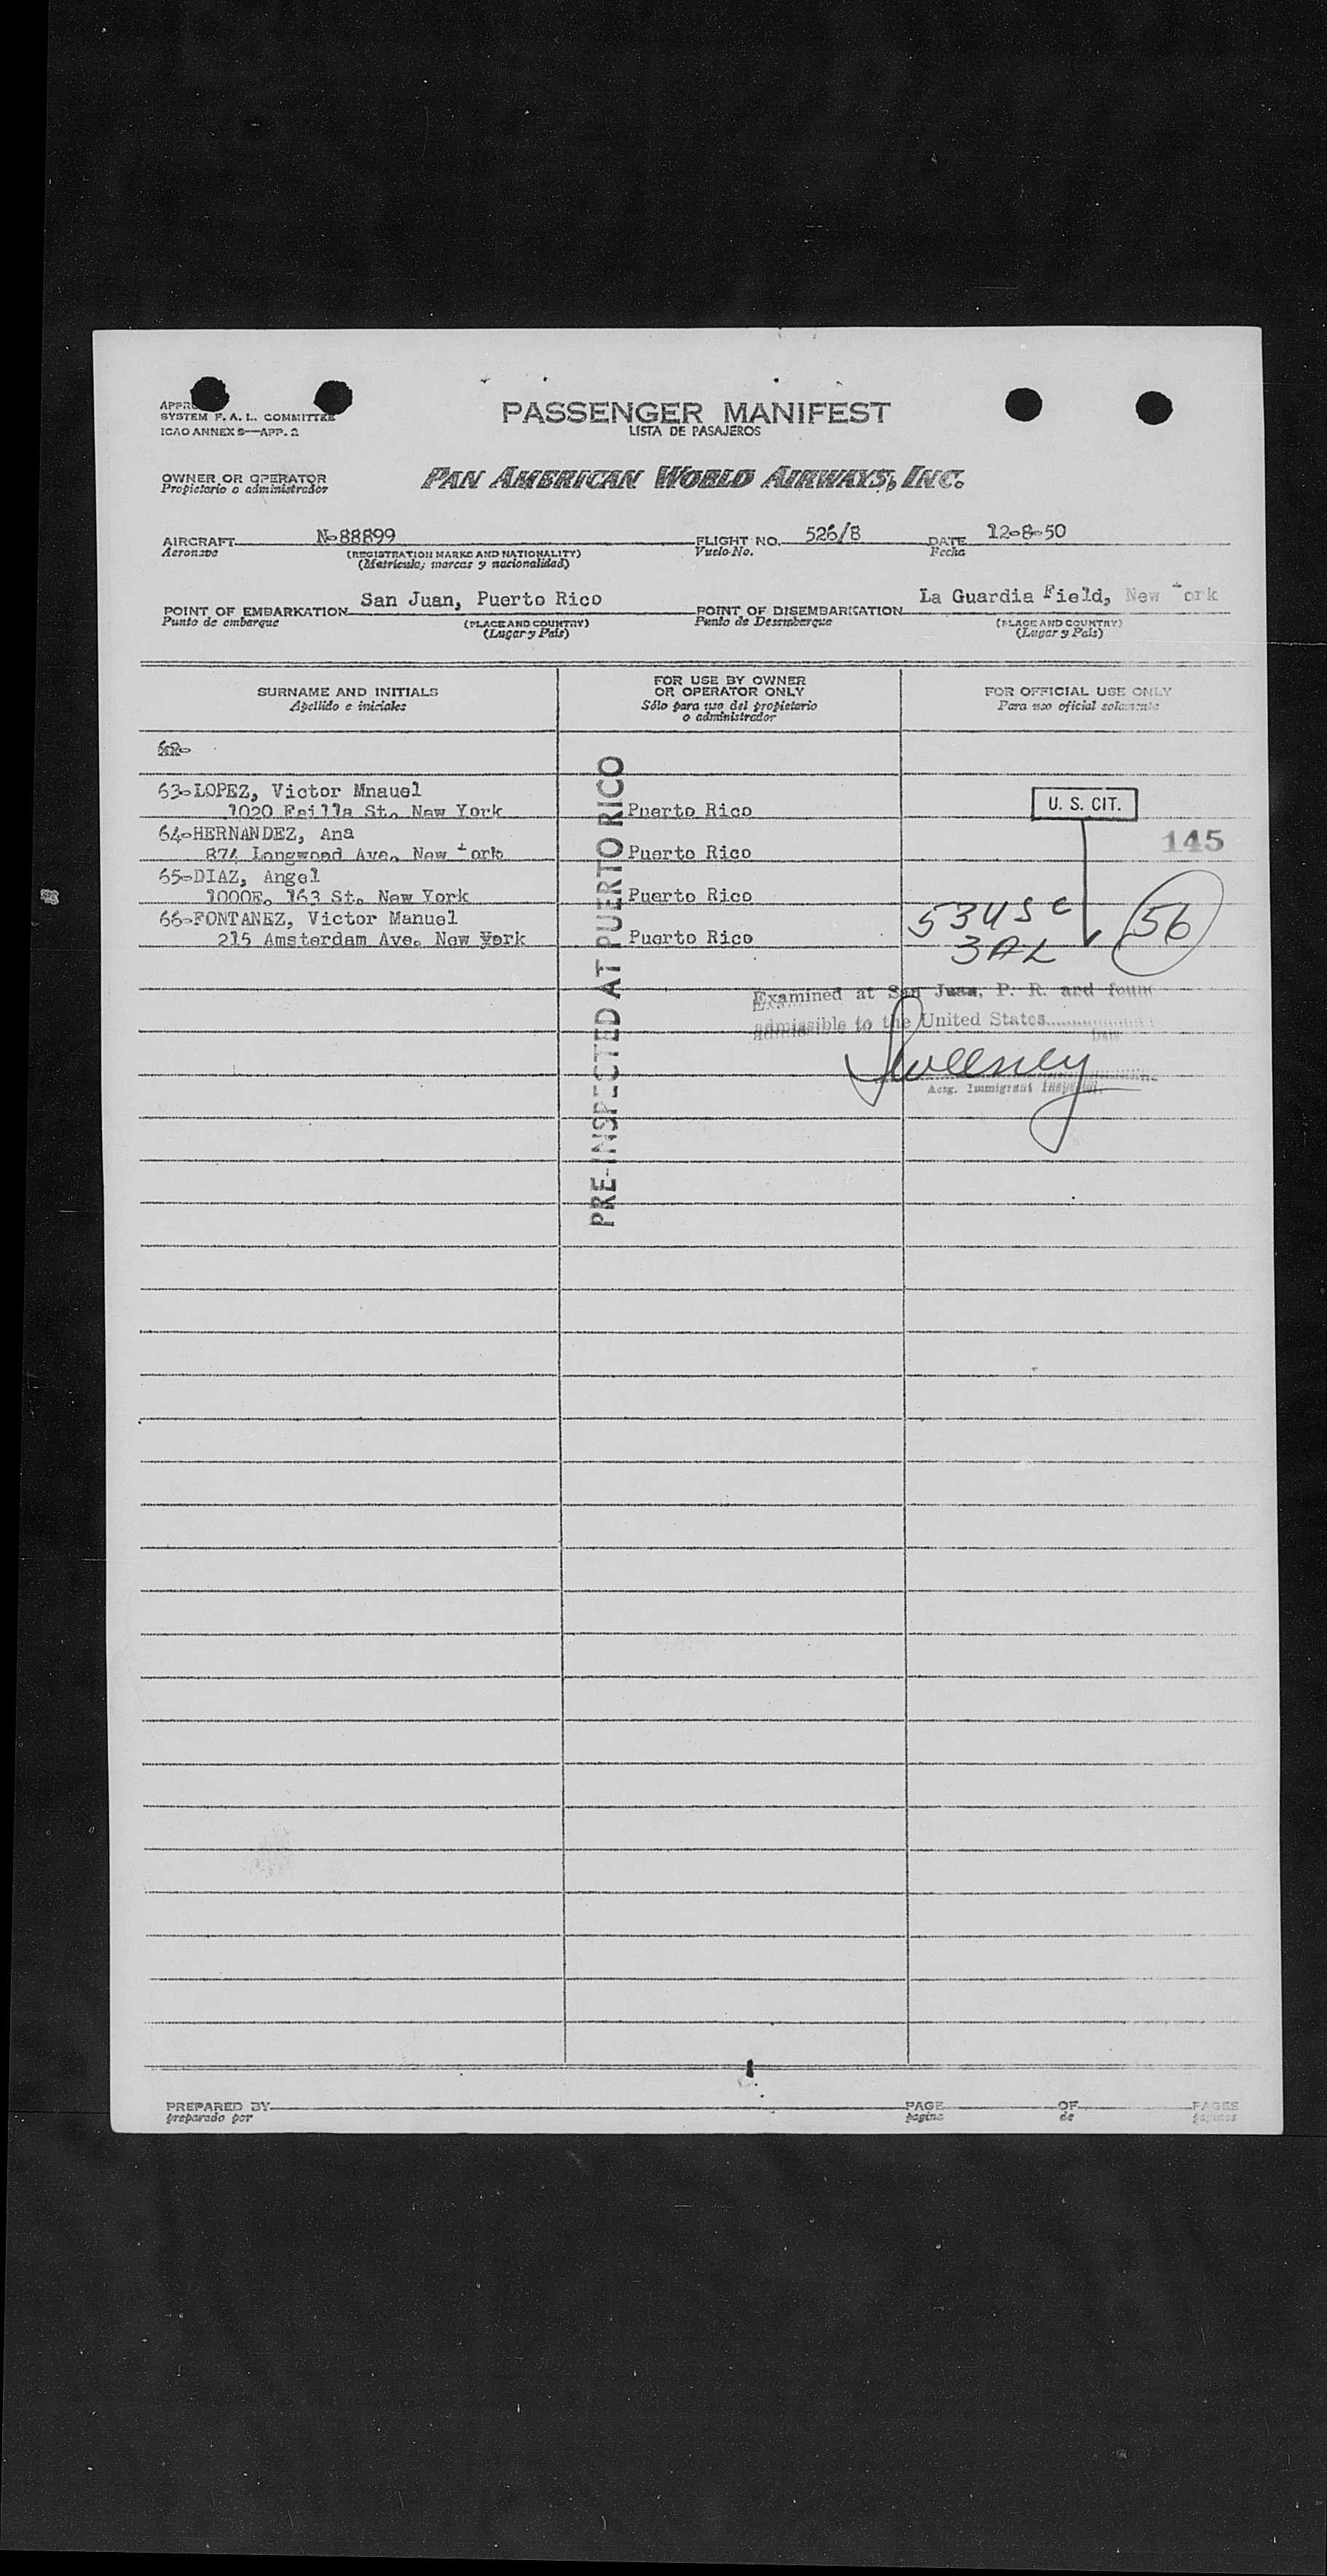 SYSTEM F. A. L. COMMITTEE
ICAO ANNEX 9—APP. 2
PASSENGER MANIFEST
LISTA DE PASAJEROS
OWNER OR OPERATOR
Propietario o administrador
PAN AMERICAN WORLD AIRWAYS, INC.
AIRCRAFT N-88899 FLIGHT NO. 526/8 DATE 12-8-50
Aeronave (REGISTRATION MARKS AND NATIONALITY) Vuelo No. Fecha
(Matrícula; marcas y nacionalidad)
POINT OF EMBARKATION San Juan, Puerto Rico POINT OF DISEMBARKATION La Guardia Field, New York
Punto de embarque (PLACE AND COUNTRY) Punto de Desembarque (PLACE AND COUNTRY)
(Lugar y País) (Lugar y País)
SURNAME AND INITIALS
Apellido e iniciales
FOR USE BY OWNER
OR OPERATOR ONLY
Sólo para uso del propietario
o administrador
FOR OFFICIAL USE ONLY
Para uso oficial solamente
62-
63-LOPEZ, Victor Mnauel
1020 St. New York Puerto Rico
U. S. CIT.
64-HERNANDEZ, Ana
874 Longwood Ave. New York Puerto Rico
145
65-DIAZ, Angel
1000E. 163 St. New York Puerto Rico
66-FONTANEZ, Victor Manuel
215 Amsterdam Ave. New York Puerto Rico
53 USC
3 AL
56
PRE-INSPECTED AT PUERTO RICO
Examined at San Juan, P. R. and found
admissible to the United States
Date
Sweeney
Actg. Immigrant Inspector.
PREPARED BY PAGE OF PAGES
preparado por pagina de paginas